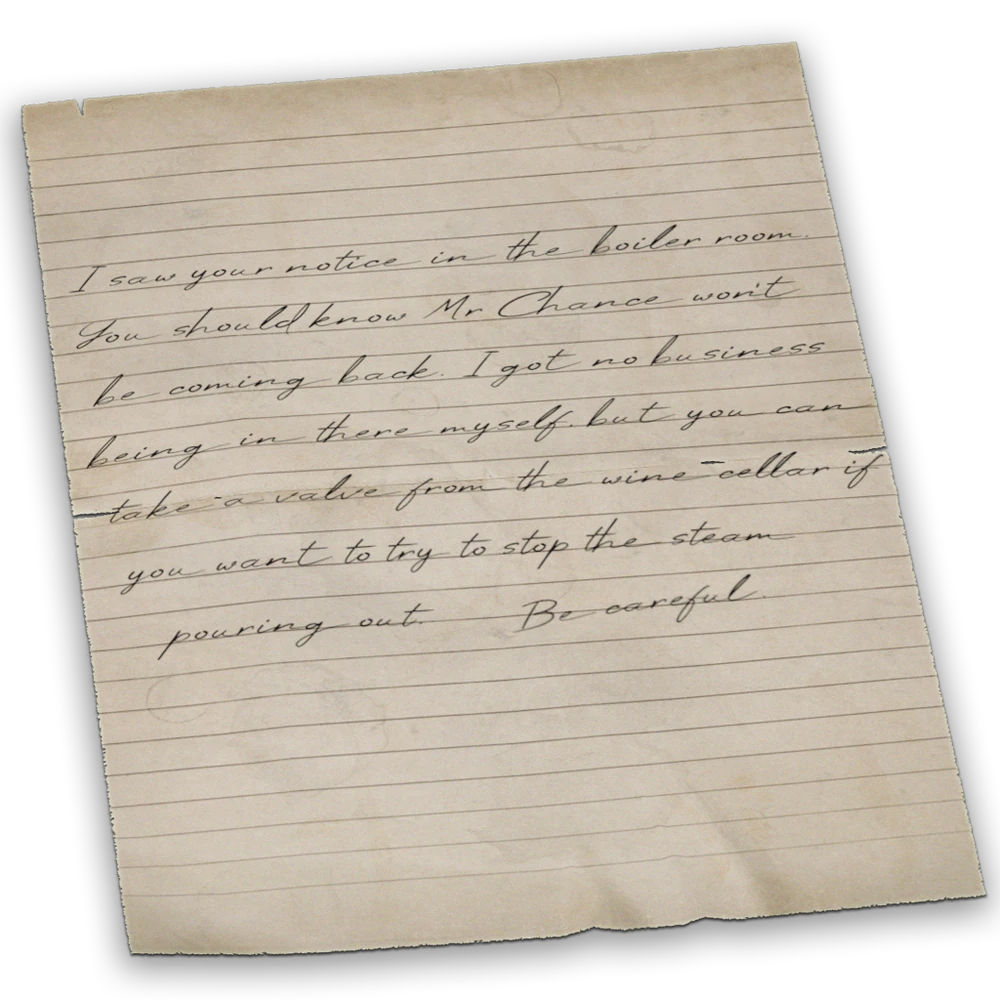 I saw your notice in the boiler room.
You should know Mr Chance won't
be coming back. I got no business
being in there myself, but you can
take a valve from the wine cellar if
you want to try to stop the steam
pouring out. Be careful.